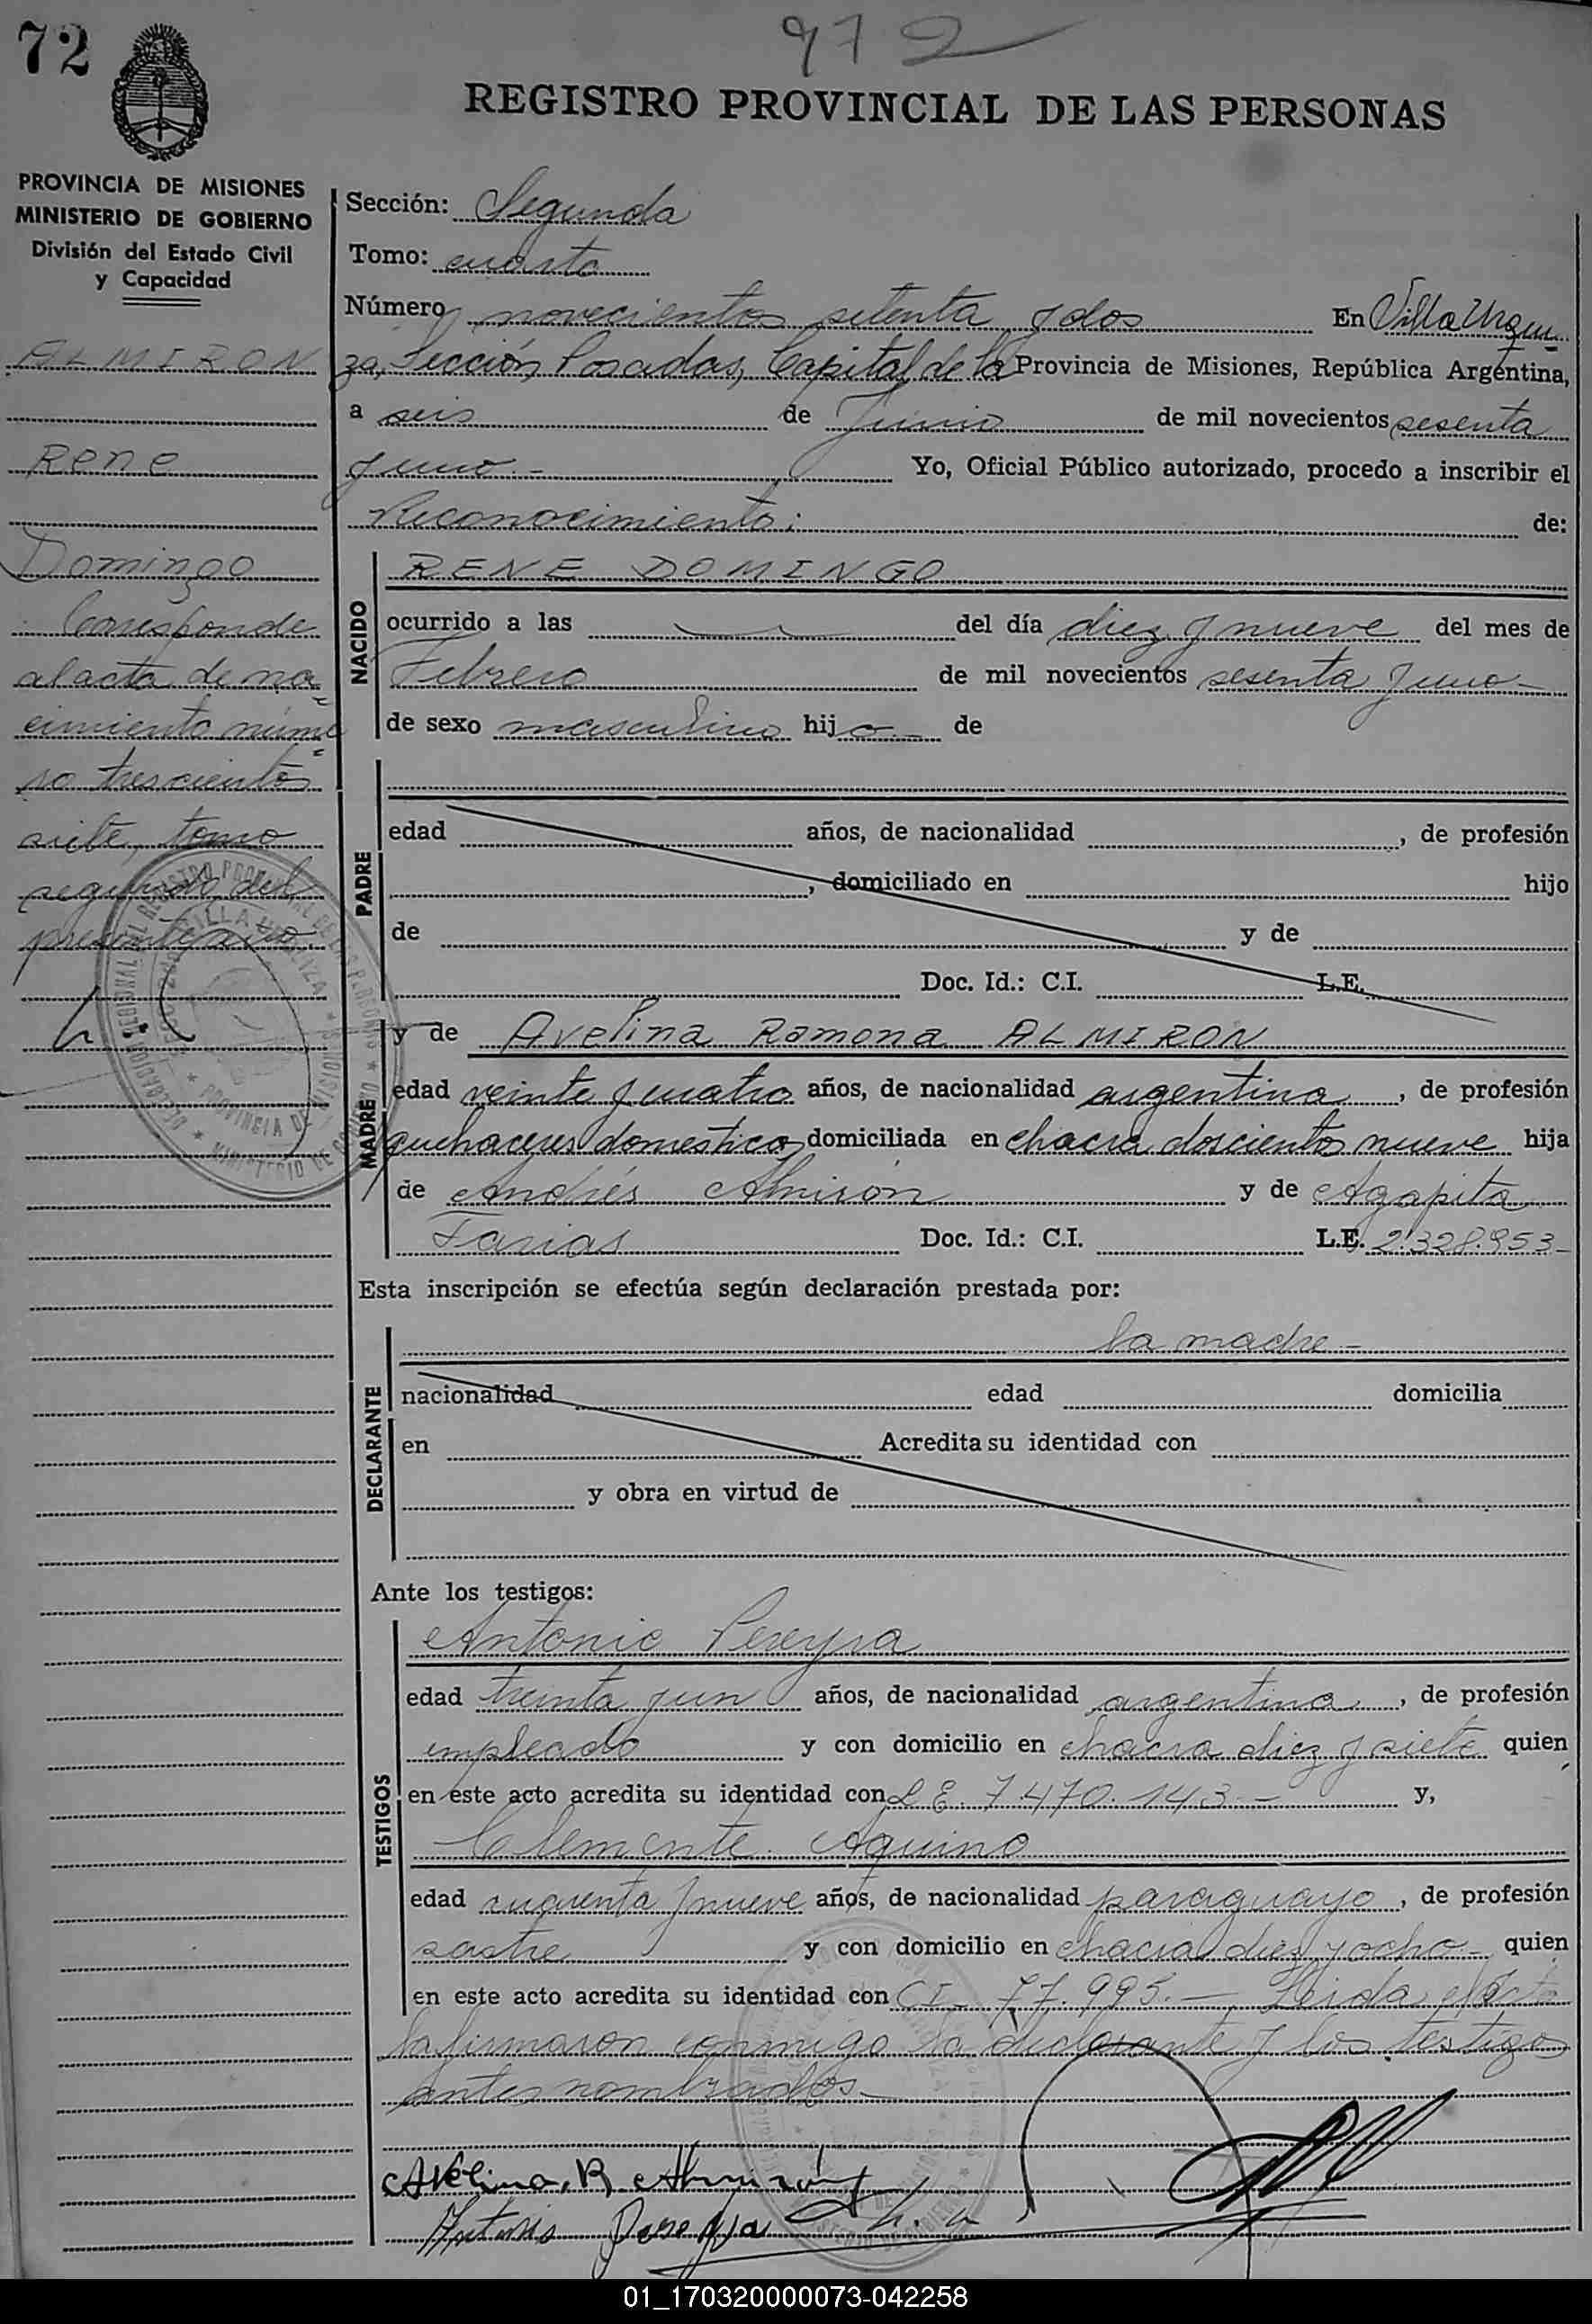 72
972
REGISTRO PROVINCIAL DE LAS PERSONAS
PROVINCIA DE MISIONES
MINISTERIO DE GOBIERNO
División del Estado Civil
y Capacidad
ALMIRON
Rene
Domingo
Corresponde
al acta de na-
cimiento núme-
ro trescientos
siete, tomo
segundo del
presente año
Sección: Segunda
Tomo: cuarto
Número novecientos setenta y dos En Villa Urqui-
za, Sección Posadas, Capital de la Provincia de Misiones, República Argentina,
a seis de Junio de mil novecientos sesenta
y uno.- Yo, Oficial Público autorizado, procedo a inscribir el
Reconocimiento: de:
NACIDO
RENE DOMINGO
ocurrido a las del día diez y nueve del mes de
Febrero de mil novecientos sesenta y uno-
de sexo masculino hijo.- de
PADRE
edad años, de nacionalidad , de profesión
, domiciliado en hijo
de y de
Doc. Id.: C.I. L.E.
MADRE
y de Avelina Ramona ALMIRON
edad veinte y cuatro años, de nacionalidad argentina , de profesión
quehaceres domestico domiciliada en chacra doscientos nueve hija
de Andrés Almirón y de Agapita
Farias Doc. Id.: C.I. L.E. 2.328.953-
Esta inscripción se efectúa según declaración prestada por:
DECLARANTE
la madre.-
nacionalidad edad domicilia
en Acredita su identidad con
y obra en virtud de
Ante los testigos:
TESTIGOS
Antonio Pereyra
edad treinta y un años, de nacionalidad argentina , de profesión
empleado y con domicilio en chacra diez y siete quien
en este acto acredita su identidad con L.E. 7.470.143.- y,
Clemente Aquino
edad cuarenta y nueve años, de nacionalidad paraguayo , de profesión
sastre y con domicilio en chacra diez y ocho- quien
en este acto acredita su identidad con CI. 77.995.- Leida el Acta
la firmaron conmigo la declarante y los testigos
antes nombrados-
Avelina. R. Almirón
Antonio Pereyra
01_170320000073-042258